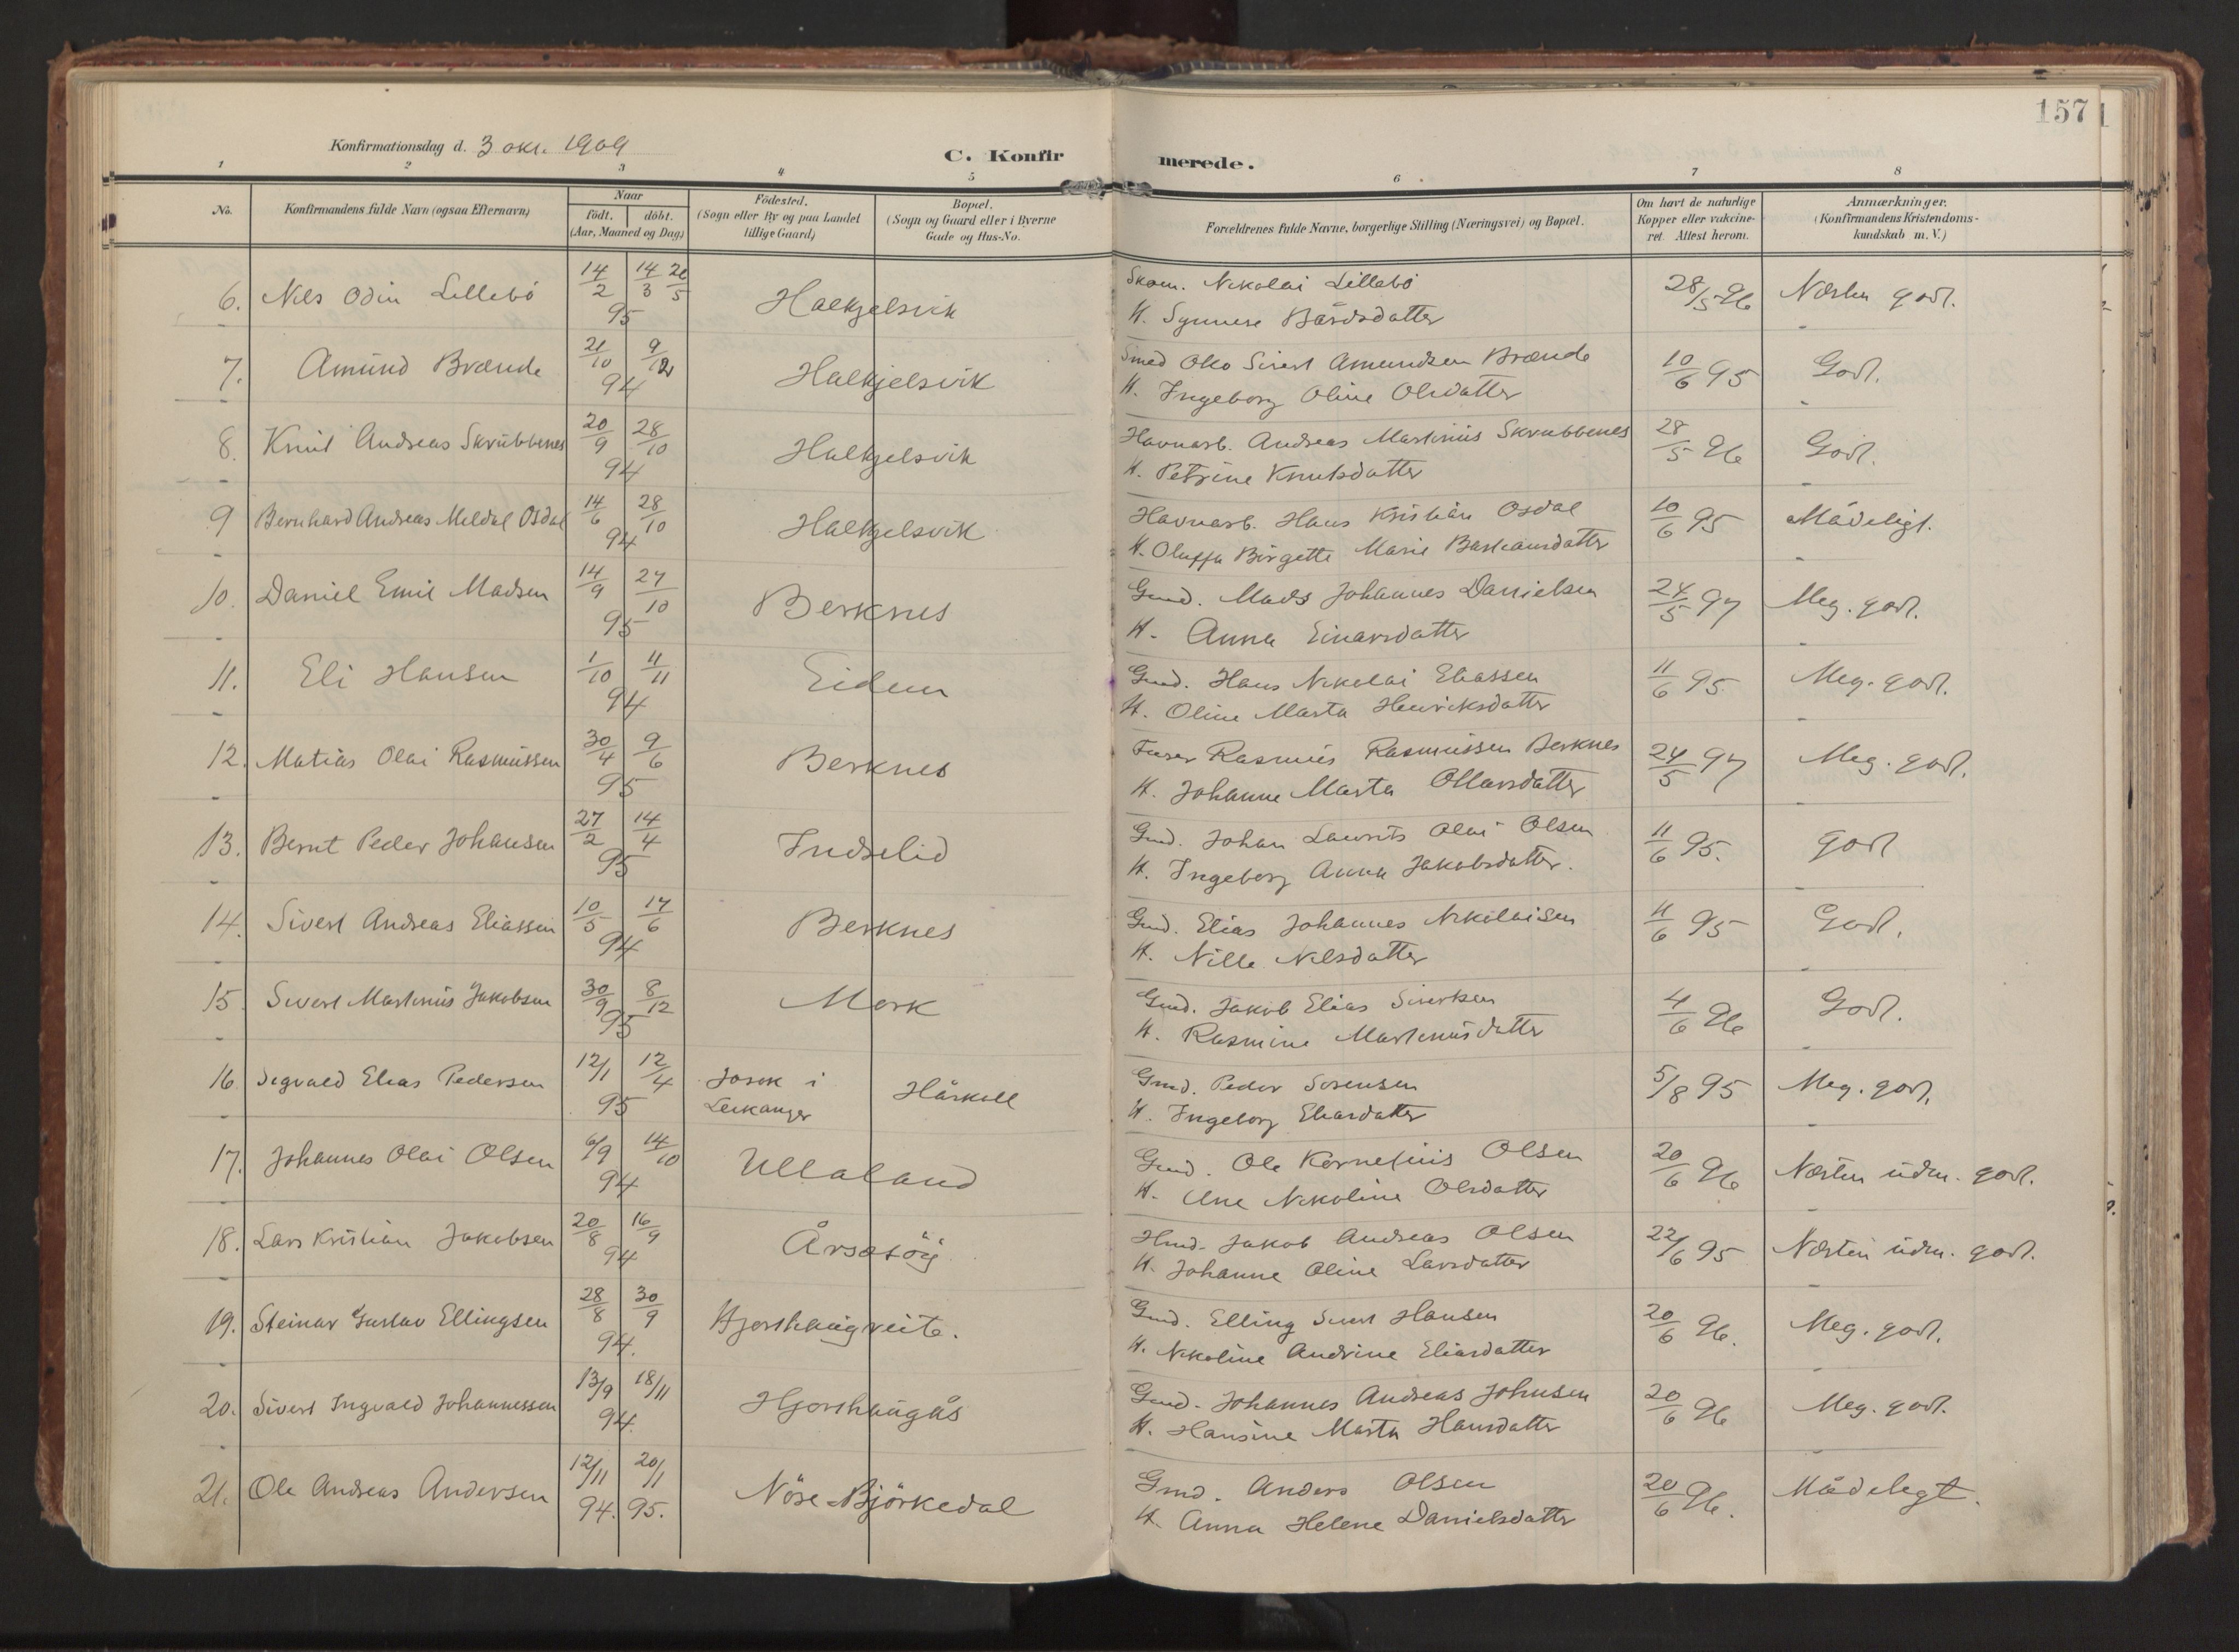 157
Konfirmationsdag d. 3 okt. 1909
C. Konfirmerede.
1 2 3 4 5 6 7 8
No.
Konfirmandens fulde Navn (ogsaa Efternavn)
Naar
födt. döbt.
(Aar, Maaned og Dag)
Födested.
(Sogn eller By og paa Landet
tillige Gaard)
Bopæl.
(Sogn og Gaard eller i Byerne
Gade og Hus-No.
Forældrenes fulde Navne, borgerlige Stilling (Næringsvei) og Bopæl.
Om havt de naturlige
Kopper eller vakcine-
ret. Attest herom.
Anmærkninger.
(Konfirmandens Kristendoms-
kundskab m. V.)
6. Nils Odin Lillebö 14/2 14/3 20/5 95 Halkjelsvik Skom. Nikolai Lillebö 28/5 96 Næsten godt.
H. Synnere Bårdsdatter
7. Amund Brænde 21/10 9/12 94 Halkjelsvik Smed Otto Sivert Amundsen Brænde 10/6 95 Godt.
H. Ingeborg Oline Olsdatter
8. Knut Andreas Skrubbenes 20/9 28/10 94 Halkjelsvik Havnarb. Andreas Martinus Skrubbenes 28/5 96 Godt.
H. Petrine Knutsdatter
9 Bernhard Andreas Meldal Osdal 14/6 28/10 94 Halkjelsvik Havnarb. Hans Kristian Osdal 10/6 95 Mådeligt.
H. Oluffa Birgette Marie Bastiansdatter
10. Daniel Emil Madsen 14/9 27/10 95 Berknes Gmd. Mads Johannes Danielsen 24/5 97 Meg. godt.
H. Anna Einarsdatter
11. Eli Hansen 1/10 11/11 94 Eidem Gmd. Hans Nikolai Eliassen 11/6 95 Meg. godt.
H. Oline Marta Henriksdatter
12. Matias Olai Rasmussen 30/4 9/6 95 Berknes Rasmus Rasmussen Berknes 24/5 97 Meg. godt.
H. Johanne Marta Ottarsdatter
13. Bernt Peder Johansen 27/2 14/4 95 Indselid Gmd. Johan Laurits Olai Olsen 11/6 95. godt
H. Ingeborg Anna Jakobsdatter.
14. Sivert Andreas Eliassen 10/5 17/6 94 Berknes Gmd. Elias Johannes Nikolaisen 11/6 95 Godt.
H. Nille Nilsdatter
15. Sivert Martinus Jakobsen 30/9 8/12 95 Mork Gmd. Jakob Elias Sivertsen 4/6 96 Godt.
H. Rasmine Martinusdatter
16. Sigvald Elias Pedersen 12/1 12/4 95 i Leikanger Håskoll Gmd. Peder Sörensen 5/8 95 Meg. godt.
H. Ingeborg Eliasdatter
17. Johannes Olai Olsen 6/9 14/10 94 Ullaland Gmd. Ole Kornelius Olsen 20/6 96 Næsten udm. godt.
H. Ane Nikoline Olsdatter
18. Lars Kristian Jakobsen 20/8 16/9 94 Årsetöy Hmd. Jakob Andreas Olsen 22/6 95 Næsten udm. godt.
H. Johanne Oline Larsdatter
19. Steinar Gustav Ellingsen 28/8 30/9 94. Hjorthaugveite. Gmd. Elling Sivert Hansen 20/6 96. Meg. godt.
H. Nikoline Andrine Eliasdatter
20. Sivert Ingvald Johannessen 13/9 18/11 94. Hjorthaugås Gmd. Johannes Andreas Johnsen 20/6 96 Meg. godt.
H. Hansine Marta Hansdatter
21. Ole Andreas Andersen 12/11 94. 20/1 95. Nöre Björkedal Gmd. Anders Olsen 20/6 96. Mådelegt.
H. Anna Helene Danielsdatter